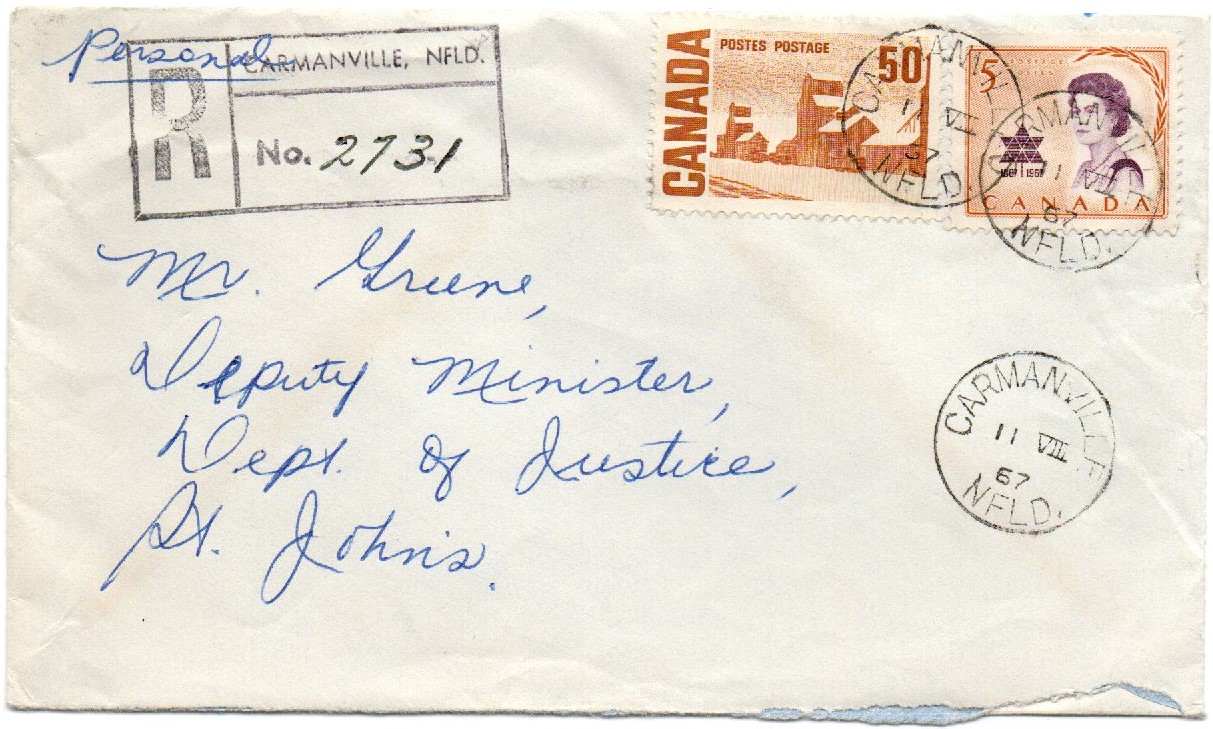 Personal
R
CARMANVILLE, NFLD.
No. 2731
CANADA
POSTES POSTAGE
50
5
POSTAGE
1867 1967
CANADA
CARMANVILLE
11 VIII
67
NFLD.
CARMANVILLE
11 VIII
67
NFLD.
Mr. Greene,
Deputy Minister,
Dept. of Justice,
St. John's.
CARMANVILLE
11 VIII
67
NFLD.